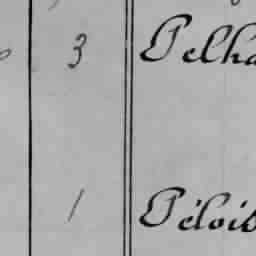 3 Pelha
1 Pélois